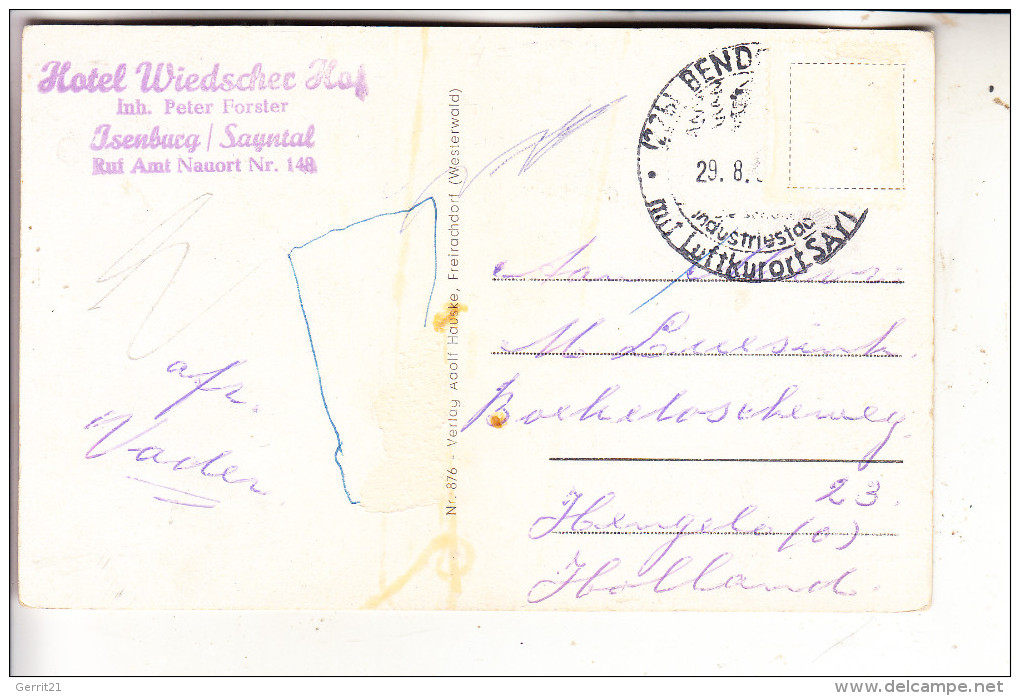 Hotel Wiedscher Hof
Inh. Peter Forster
Isenburg / Sayntal
Ruf Amt Nauort Nr. 148
(22b) BEND
29. 8.
Industriestad
mit Luftkurort SAY
Nr. 876 - Verlag Adolf Hauske, Freirachdorf (Westerwald)
afz.
Vader
Aan
M
Boekeloscheweg
23.
Hengelo (O)
Holland.
Gerrit21
delcampe.net